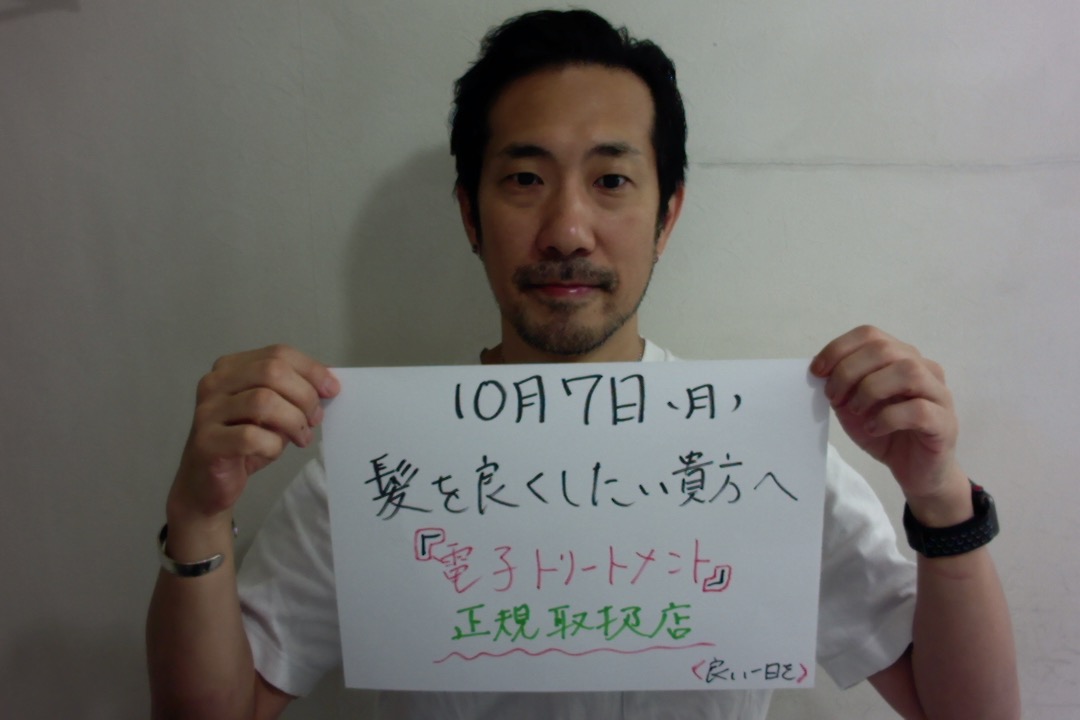 10月7日、月,
髪を良くしたい貴方へ
『電子トリートメント』
正規取扱店
<良い一日を>